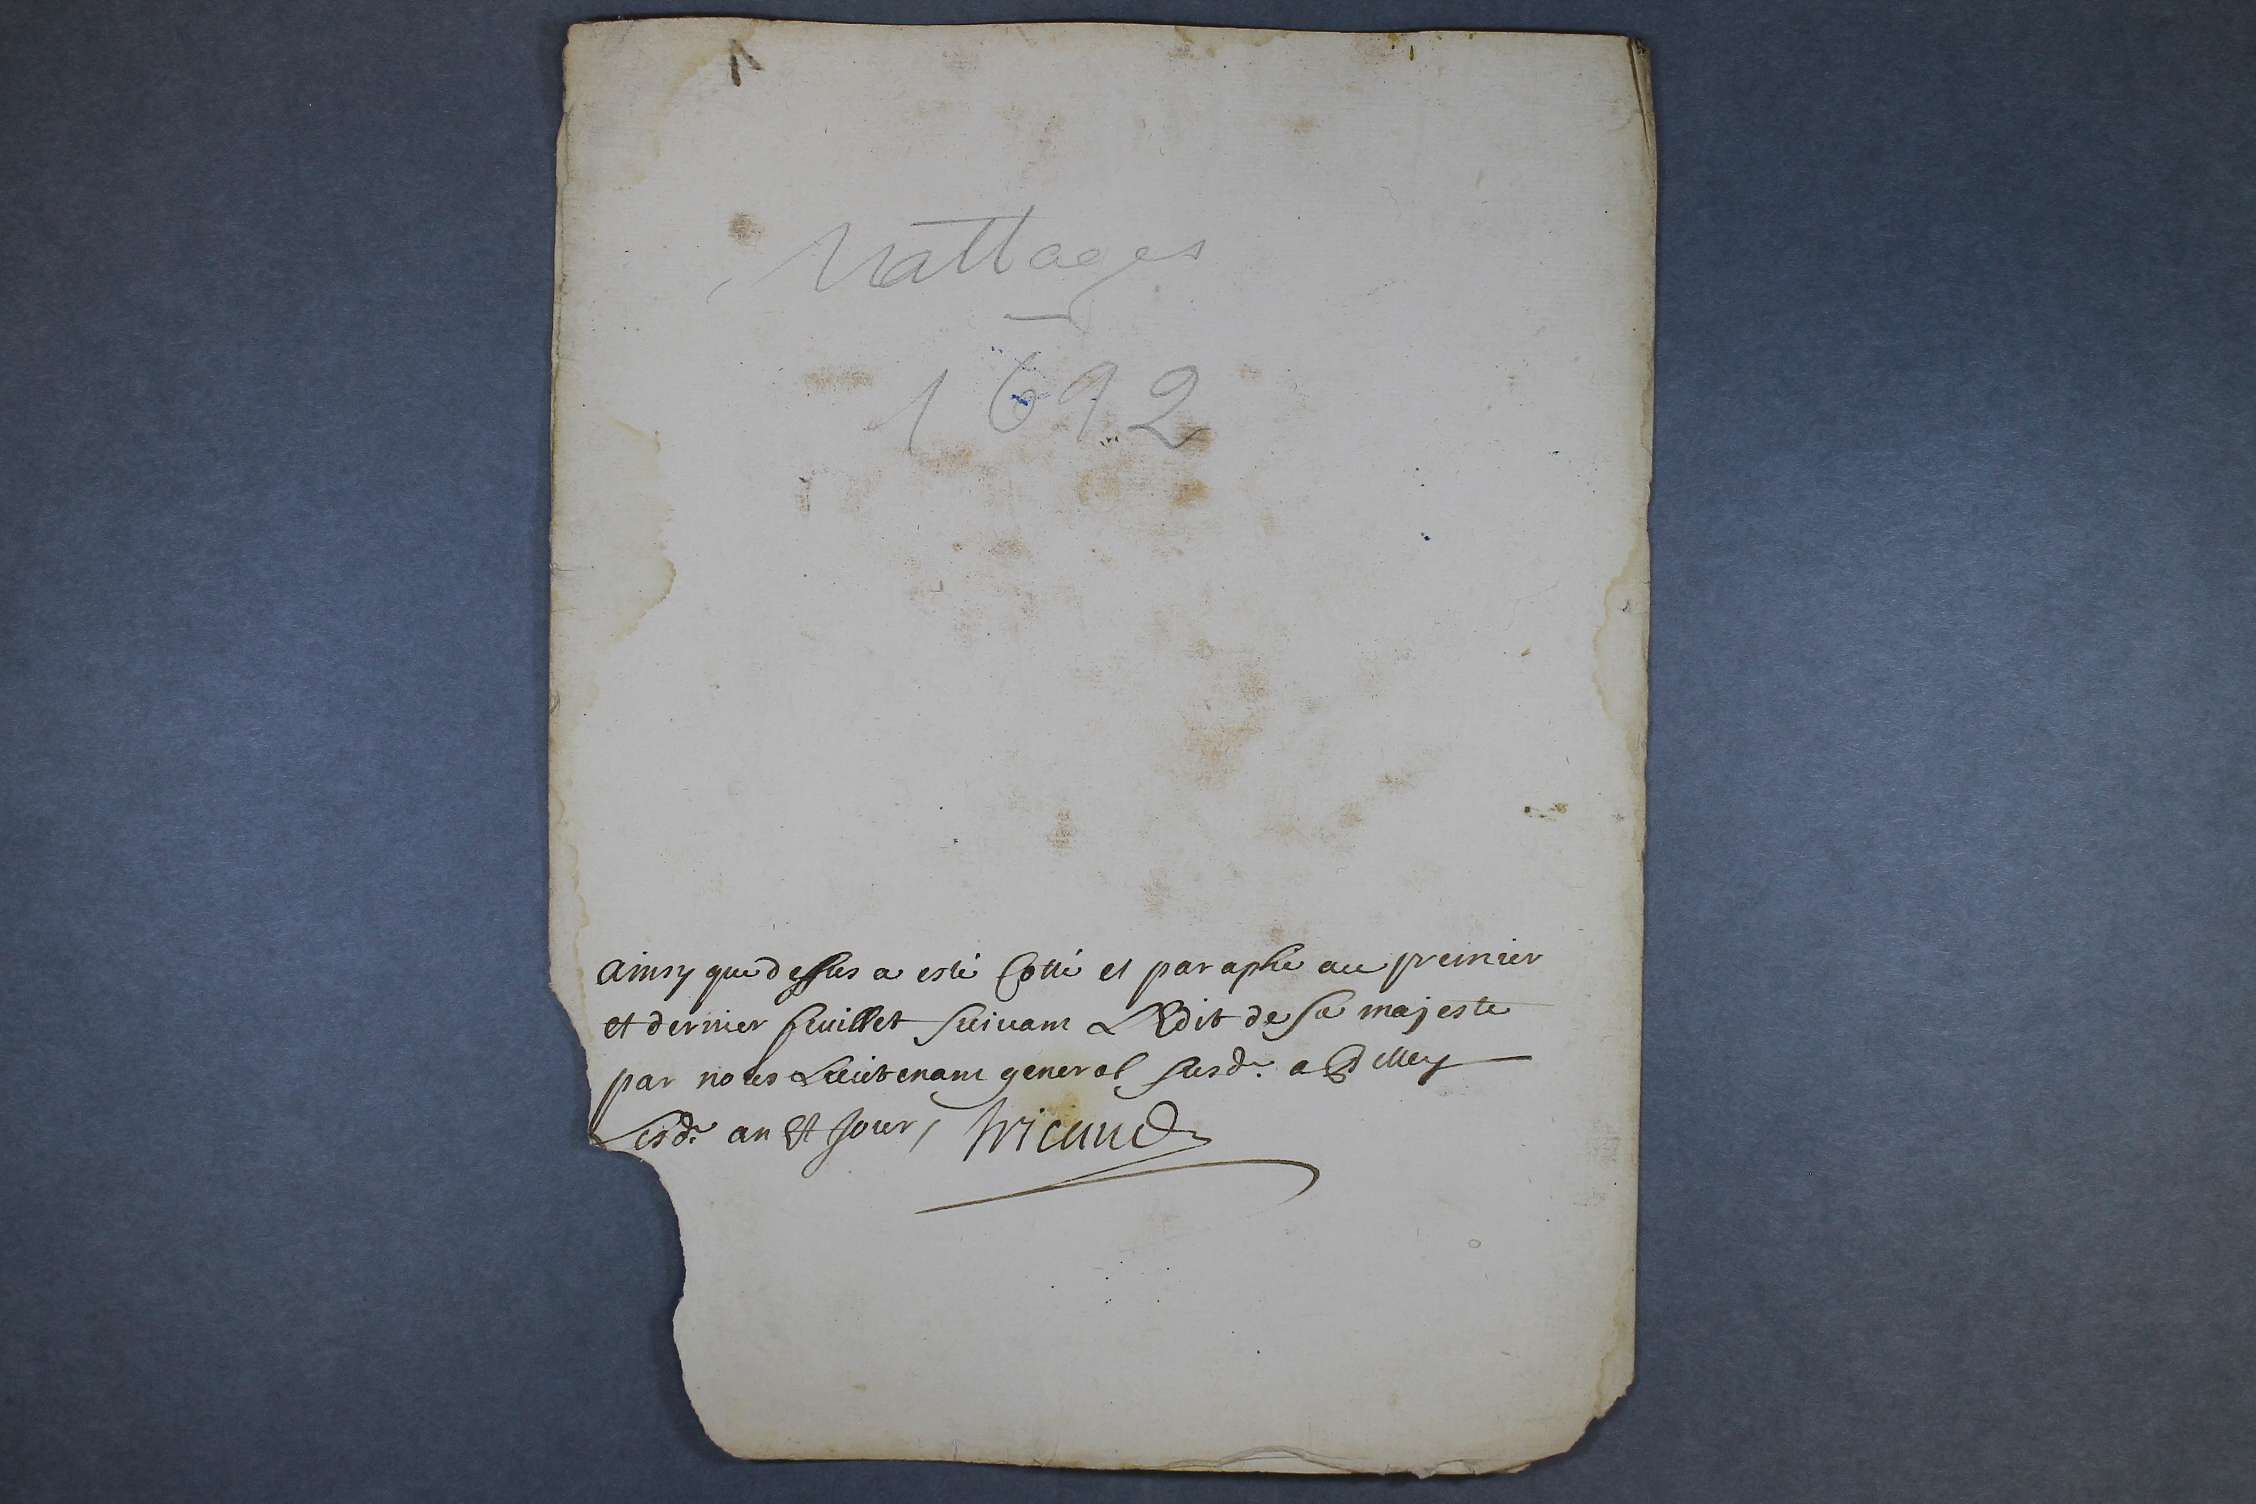 Nattages
1692
ainsy que dessus a esté Cotté et paraphé au premier
et dernier feuillet suivant L'Edit de sa majesté
par nous Lieutenant general susd. a Belley
Lesd. an et Jour,